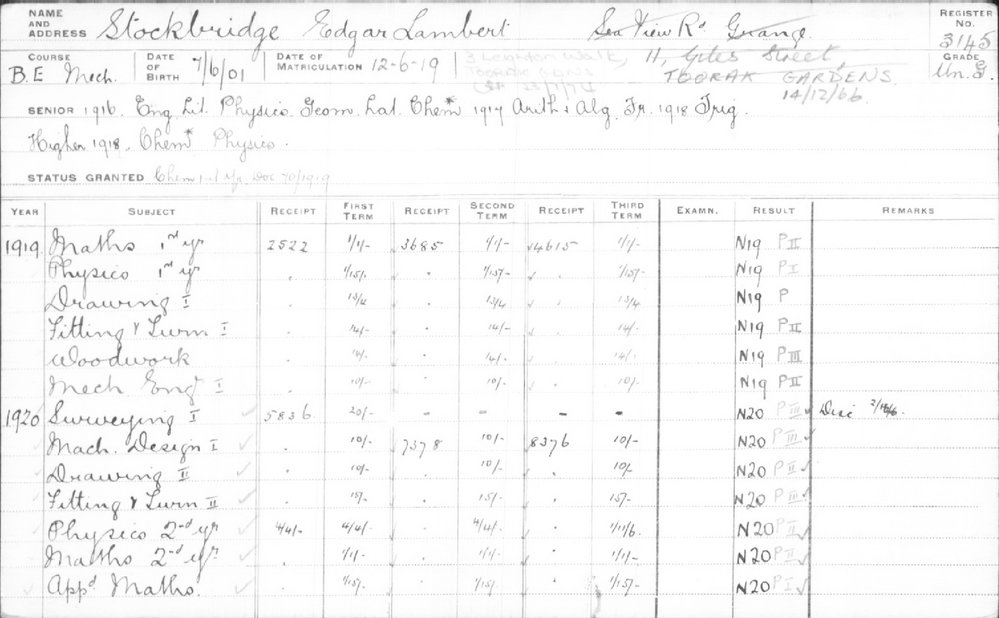 NAME AND ADDRESS Stockbridge Edgar Lambert Sea View Rd Grange. REGISTER NO. 3145
COURSE B.E Mech. DATE OF BIRTH 7/6/01 DATE OF MATRICULATION 12-6-19 11, Giles Street, TOORAK GARDENS. 14/12/66. GRADE Un. G.
SENIOR 1916. Eng. Lit. Physics. Geom. Lat. Chem* 1917 Arith & Alg. Fr. 1918 Trig.
Higher 1918. Chem* Physics.
STATUS GRANTED Chem 1st Yr Doc 70/1919
YEAR SUBJECT RECEIPT FIRST TERM RECEIPT SECOND TERM RECEIPT THIRD TERM EXAMN. RESULT REMARKS
1919 Maths 1st yr 2522 1/1/- 3685 1/1/- 4615 1/1/- N19 P II
Physics 1st yr . 1/15/- . 1/15/- . 1/15/- N19 P I
Drawing I . 13/4 . 13/4 . 13/4 N19 P
Fitting & Turn I . 14/- . 14/- . 14/- N19 P II
Woodwork . 14/- . 14/- . 14/- N19 P III
Mech. Eng I . 10/- . 10/- . 10/- N19 P II
1920 Surveying I 5836 20/- - - - - N20 P III Disc
Mach. Design I . 10/- 7378 10/- 8376 10/- N20 P III
Drawing II . 10/- . 10/- . 10/- N20 P II
Fitting & Turn II . 15/- . 15/- . 15/- N20 P III
Physics 2nd yr 4/4/- 4/4/- . 4/4/- . 1/11/6. N20 P II
Maths 2nd yr . 1/1/- . 1/1/- . 1/1/- N20 P II
Appd Maths. . 1/15/- . 1/15/- . 1/15/- N20 P I